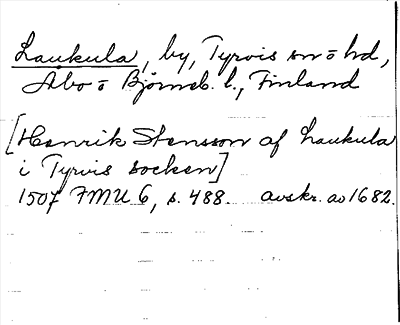 Laukula, by, Tyrvis sn o hd,
Åbo o Björneb. l., Finland
[Henrik Stensson af Laukula
i Tyrvis socken]
1507 FMU 6, s. 488. avskr. av 1682.